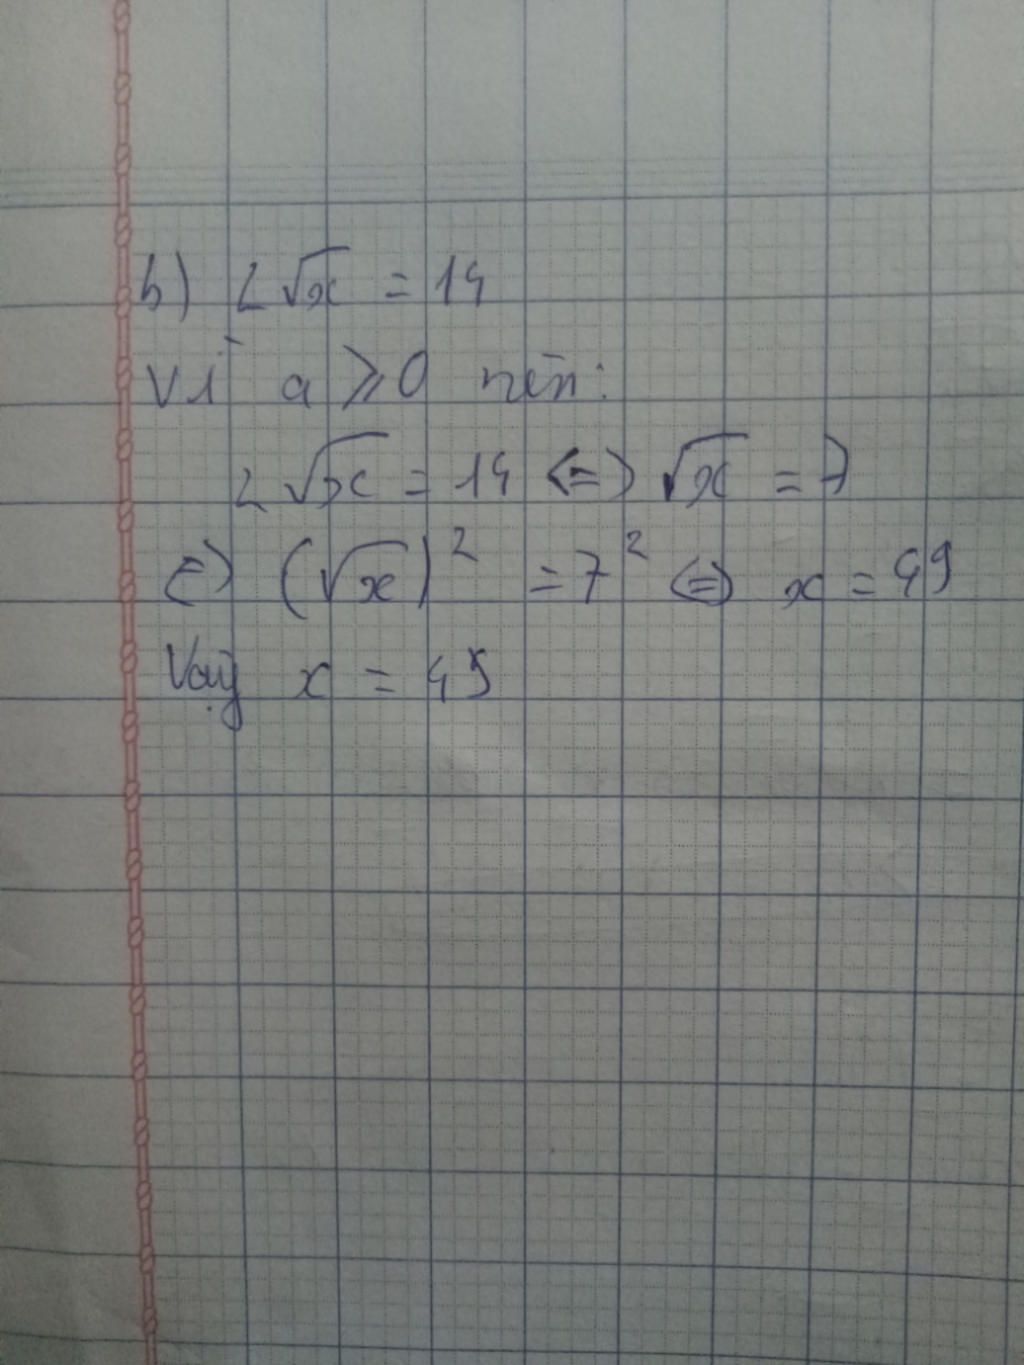 b) 2√x = 14
Vì a ⩾ 0 nên:
2√x = 14 <=> √x = 7
<=> (√x)² = 7² <=> x = 49
Vậy x = 49